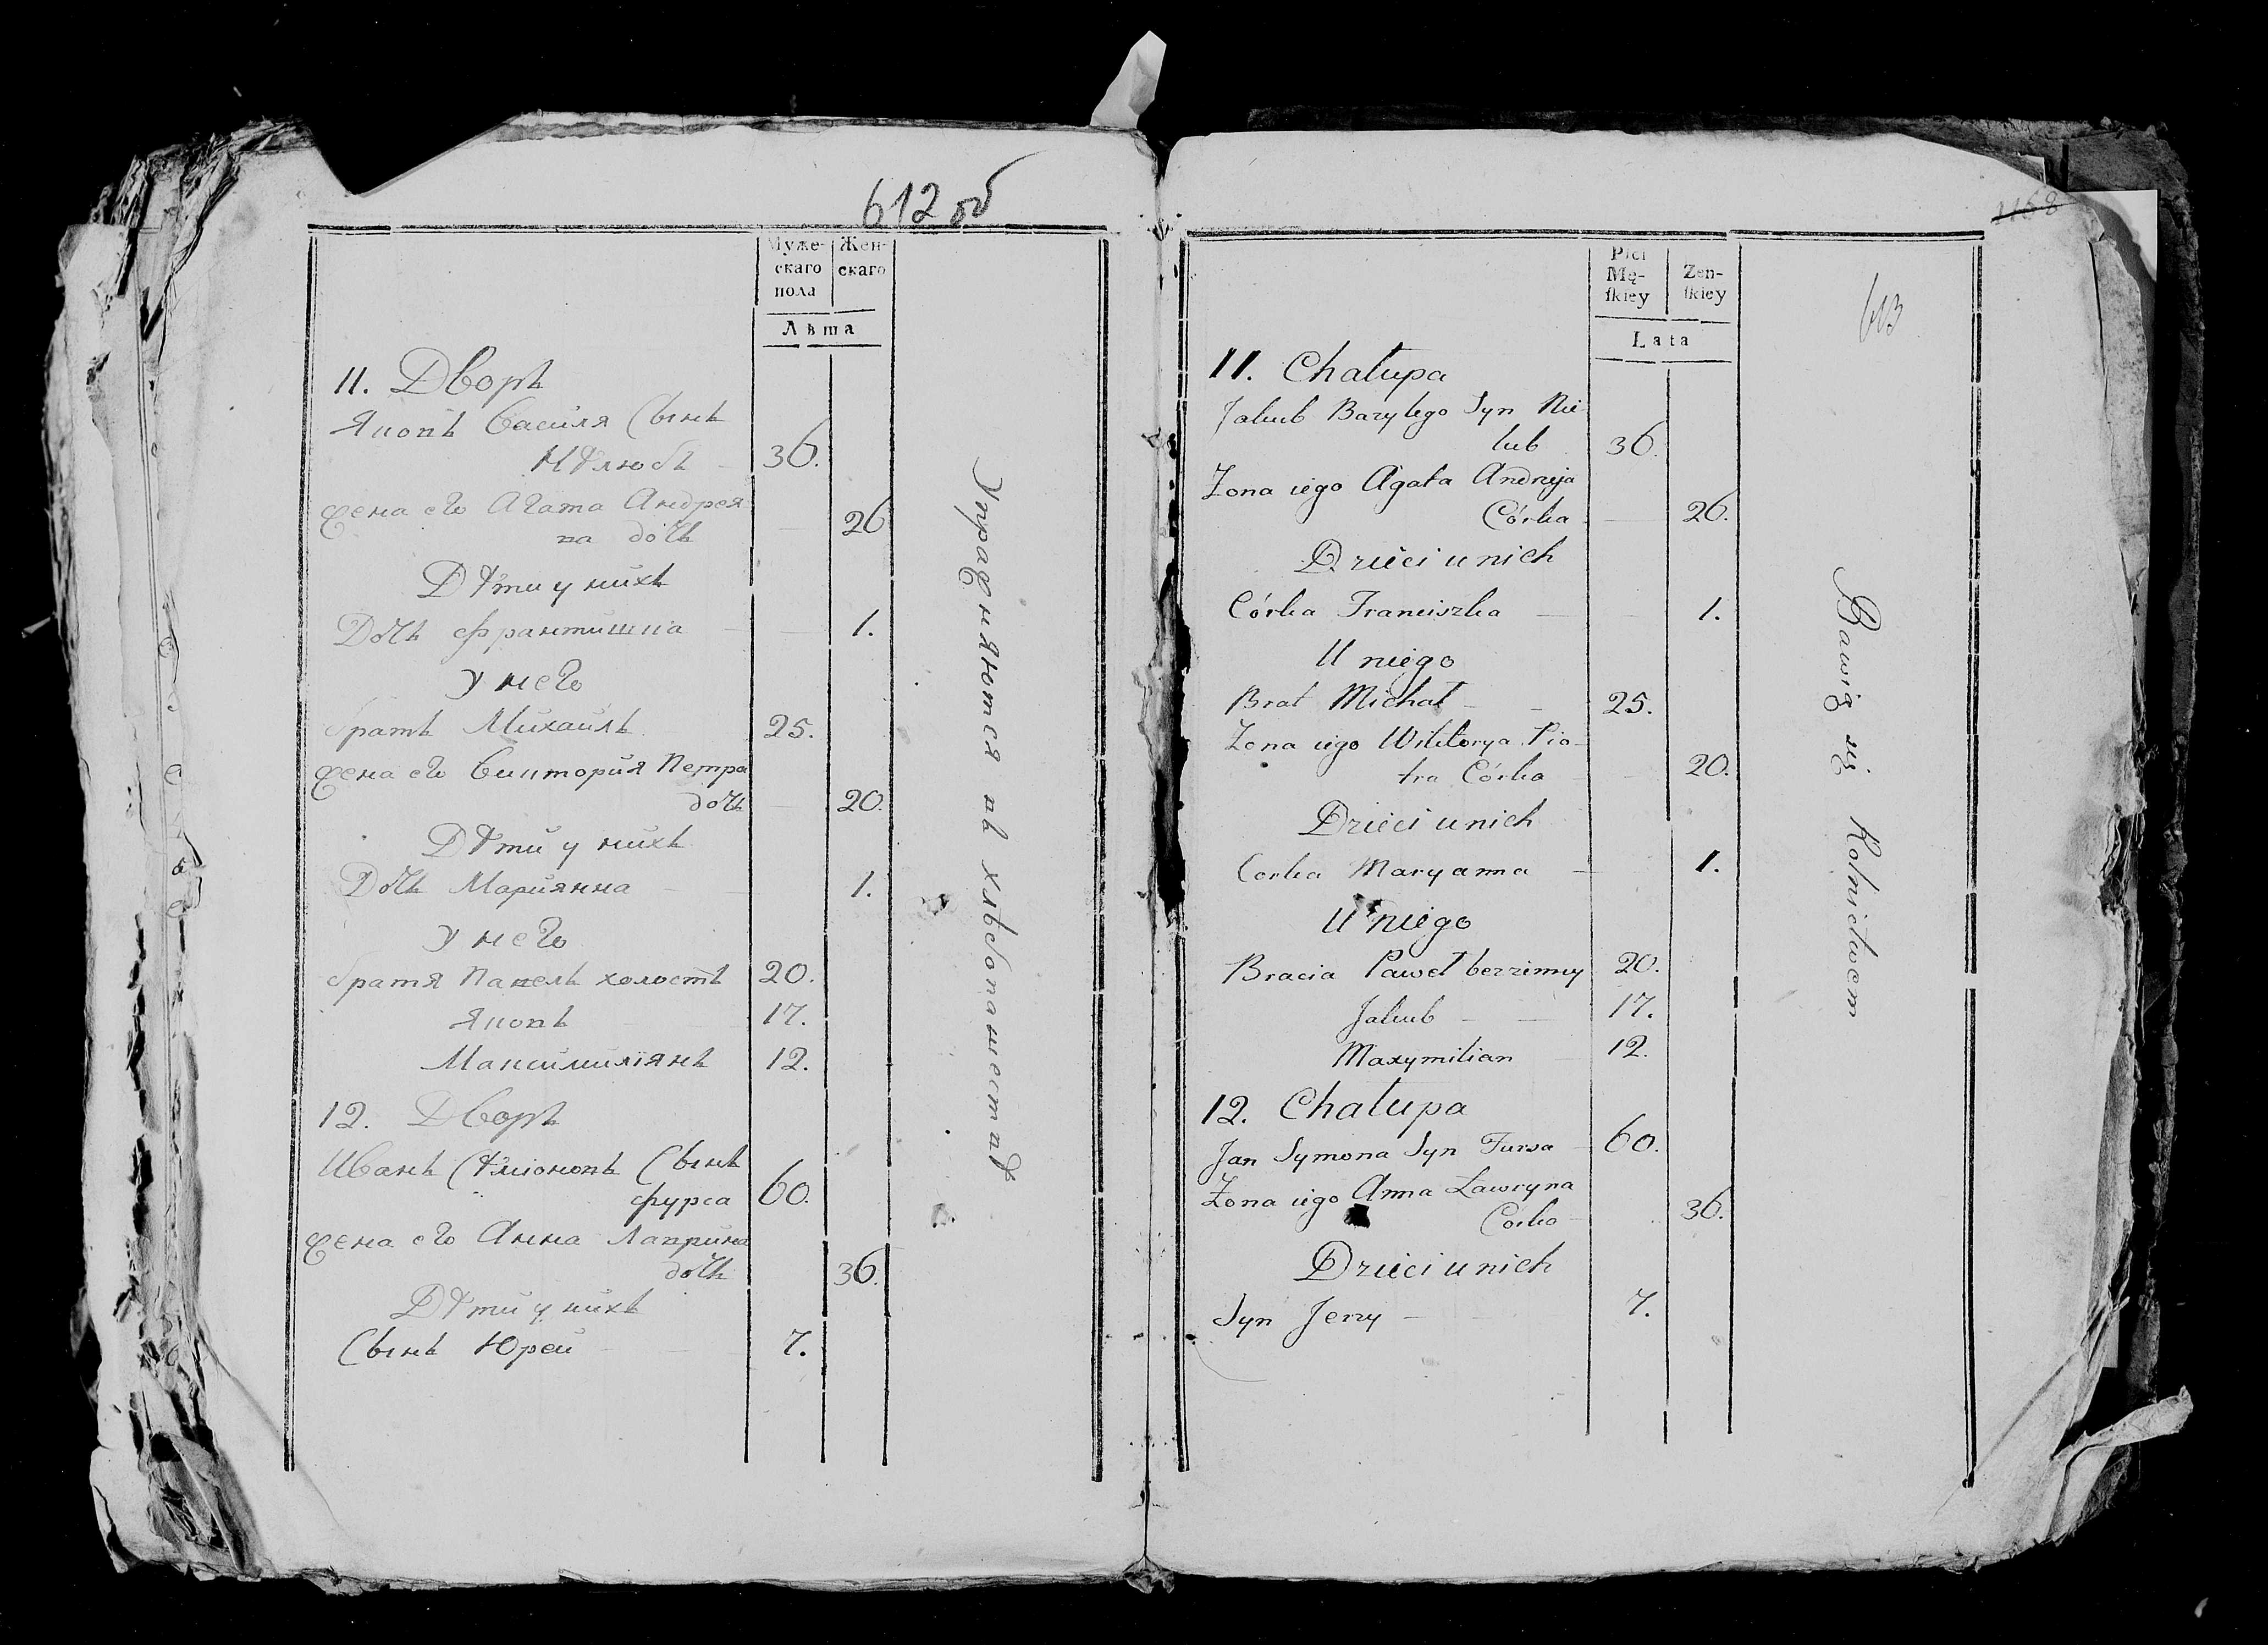 612 об
Мужескаго пола
Женскаго
Лѣта
11. Дворъ
Якопъ Василя Сынъ
Нѣлюбъ 36.
жена его Агата Андрея
на дочь 26
Дѣти у нихъ
Дочь Франтишка 1.
У него
братъ Михаилъ 25.
жена его Виктория Петра
дочь 20.
Дѣти у нихъ
Дочь Мариянна 1.
У него
братя Павелъ холостъ 20.
Якопъ 17.
Максимилiянъ 12.
12. Дворъ
Иванъ Сѣмiоновъ Сынъ
Фурса 60.
жена его Анна Лаврина
дочь 36.
Дѣти у нихъ
Сынъ Юрей 7.
Упражняются въ хлѣбопашествѣ
1168
613
Płci Mę-
ſkiey
Zen-
ſkiey
Lata
11. Chałupa
Jakub Bazylego Syn Nie
lub 36.
Zona iego Agata Andrzeja
Córka 26.
Dzieci u nich
Córka Franciszka 1.
U niego
Brat Michał 25.
Zona iego Wiktorya Pio-
tra Córka 20.
Dzieci u nich
Corka Maryanna 1.
U niego
Bracia Paweł bezzenny 20.
Jakub 17.
Maxymilian 12.
12. Chałupa
Jan Symona Syn Fursa 60.
Zona iego Anna Ławryna
Córka 36.
Dzieci u nich
Syn Jerzy 7.
Bawią się Rolnictwem